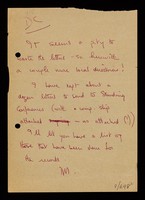 It seems a pity to
waste the letters - so herewith
a couple more local
I have kept about a
dozen letters to send to Standing
Conference (with a comp. slip
attached as attached (?)
I'll let you have a list of
those that have been done for
the records